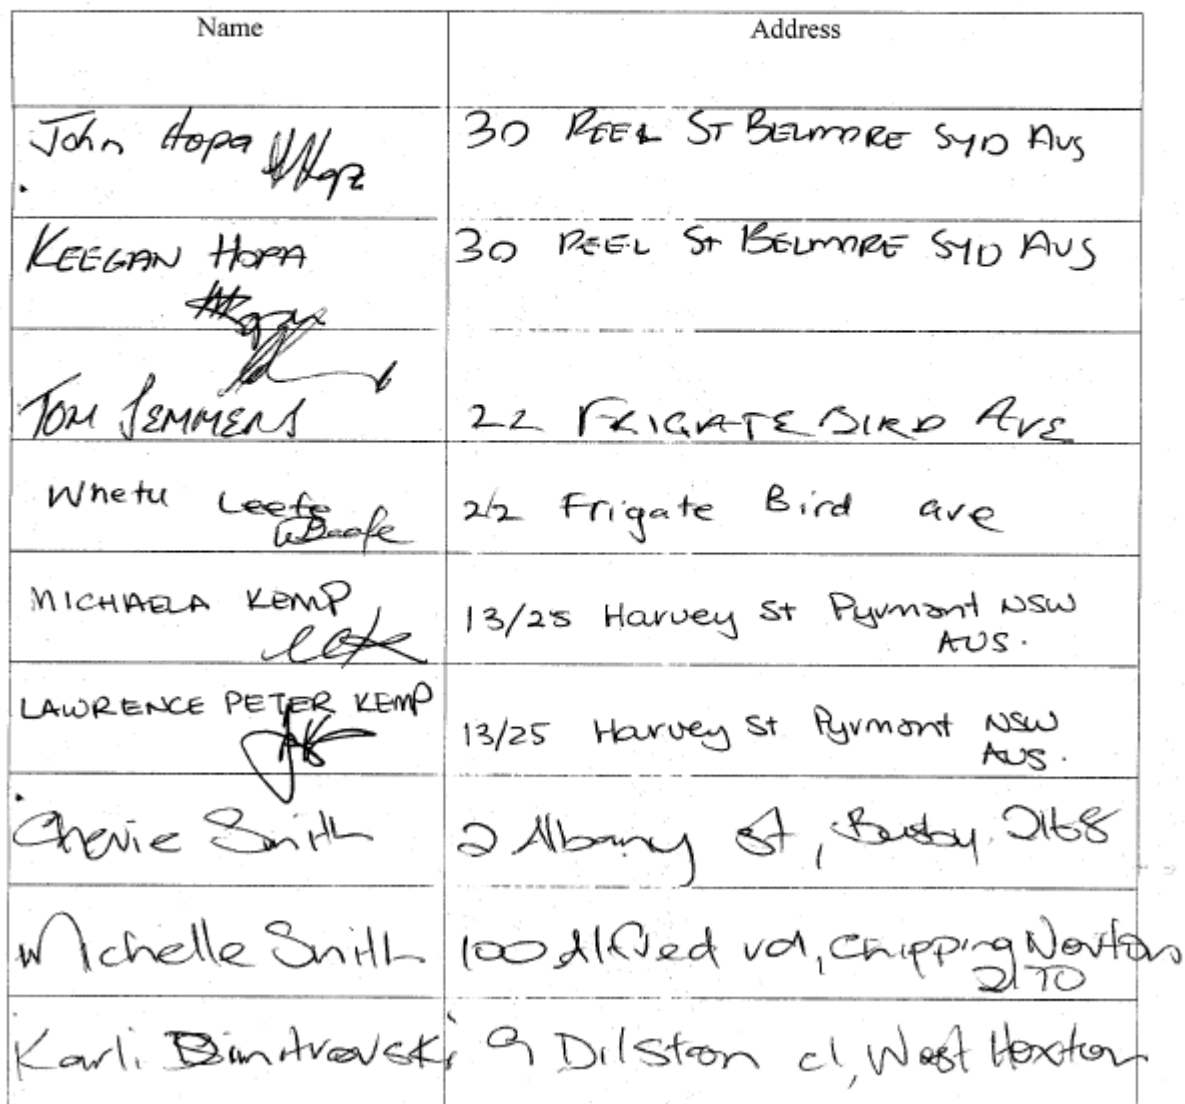 Name Address
John Hopa 30 PEEL ST BELMORE SYD AUS
KEEGAN HOPA 30 PEEL St BELMORE SYD AUS
TOM SEMMENS 22 FRIGATE BIRD AVE
Whetu Leefe 22 Frigate Bird ave
MICHAELA KEMP 13/25 Harvey St Pyrmont NSW
AUS.
LAWRENCE PETER KEMP 13/25 Harvey St Pyrmont NSW
AUS.
Cherie Smith 2 Albany St, Busby 2168
Michelle Smith 100 Alfred rd, Chipping Norton
2170
Karli Dimitrovski 9 Dilston cl, West Hoxton